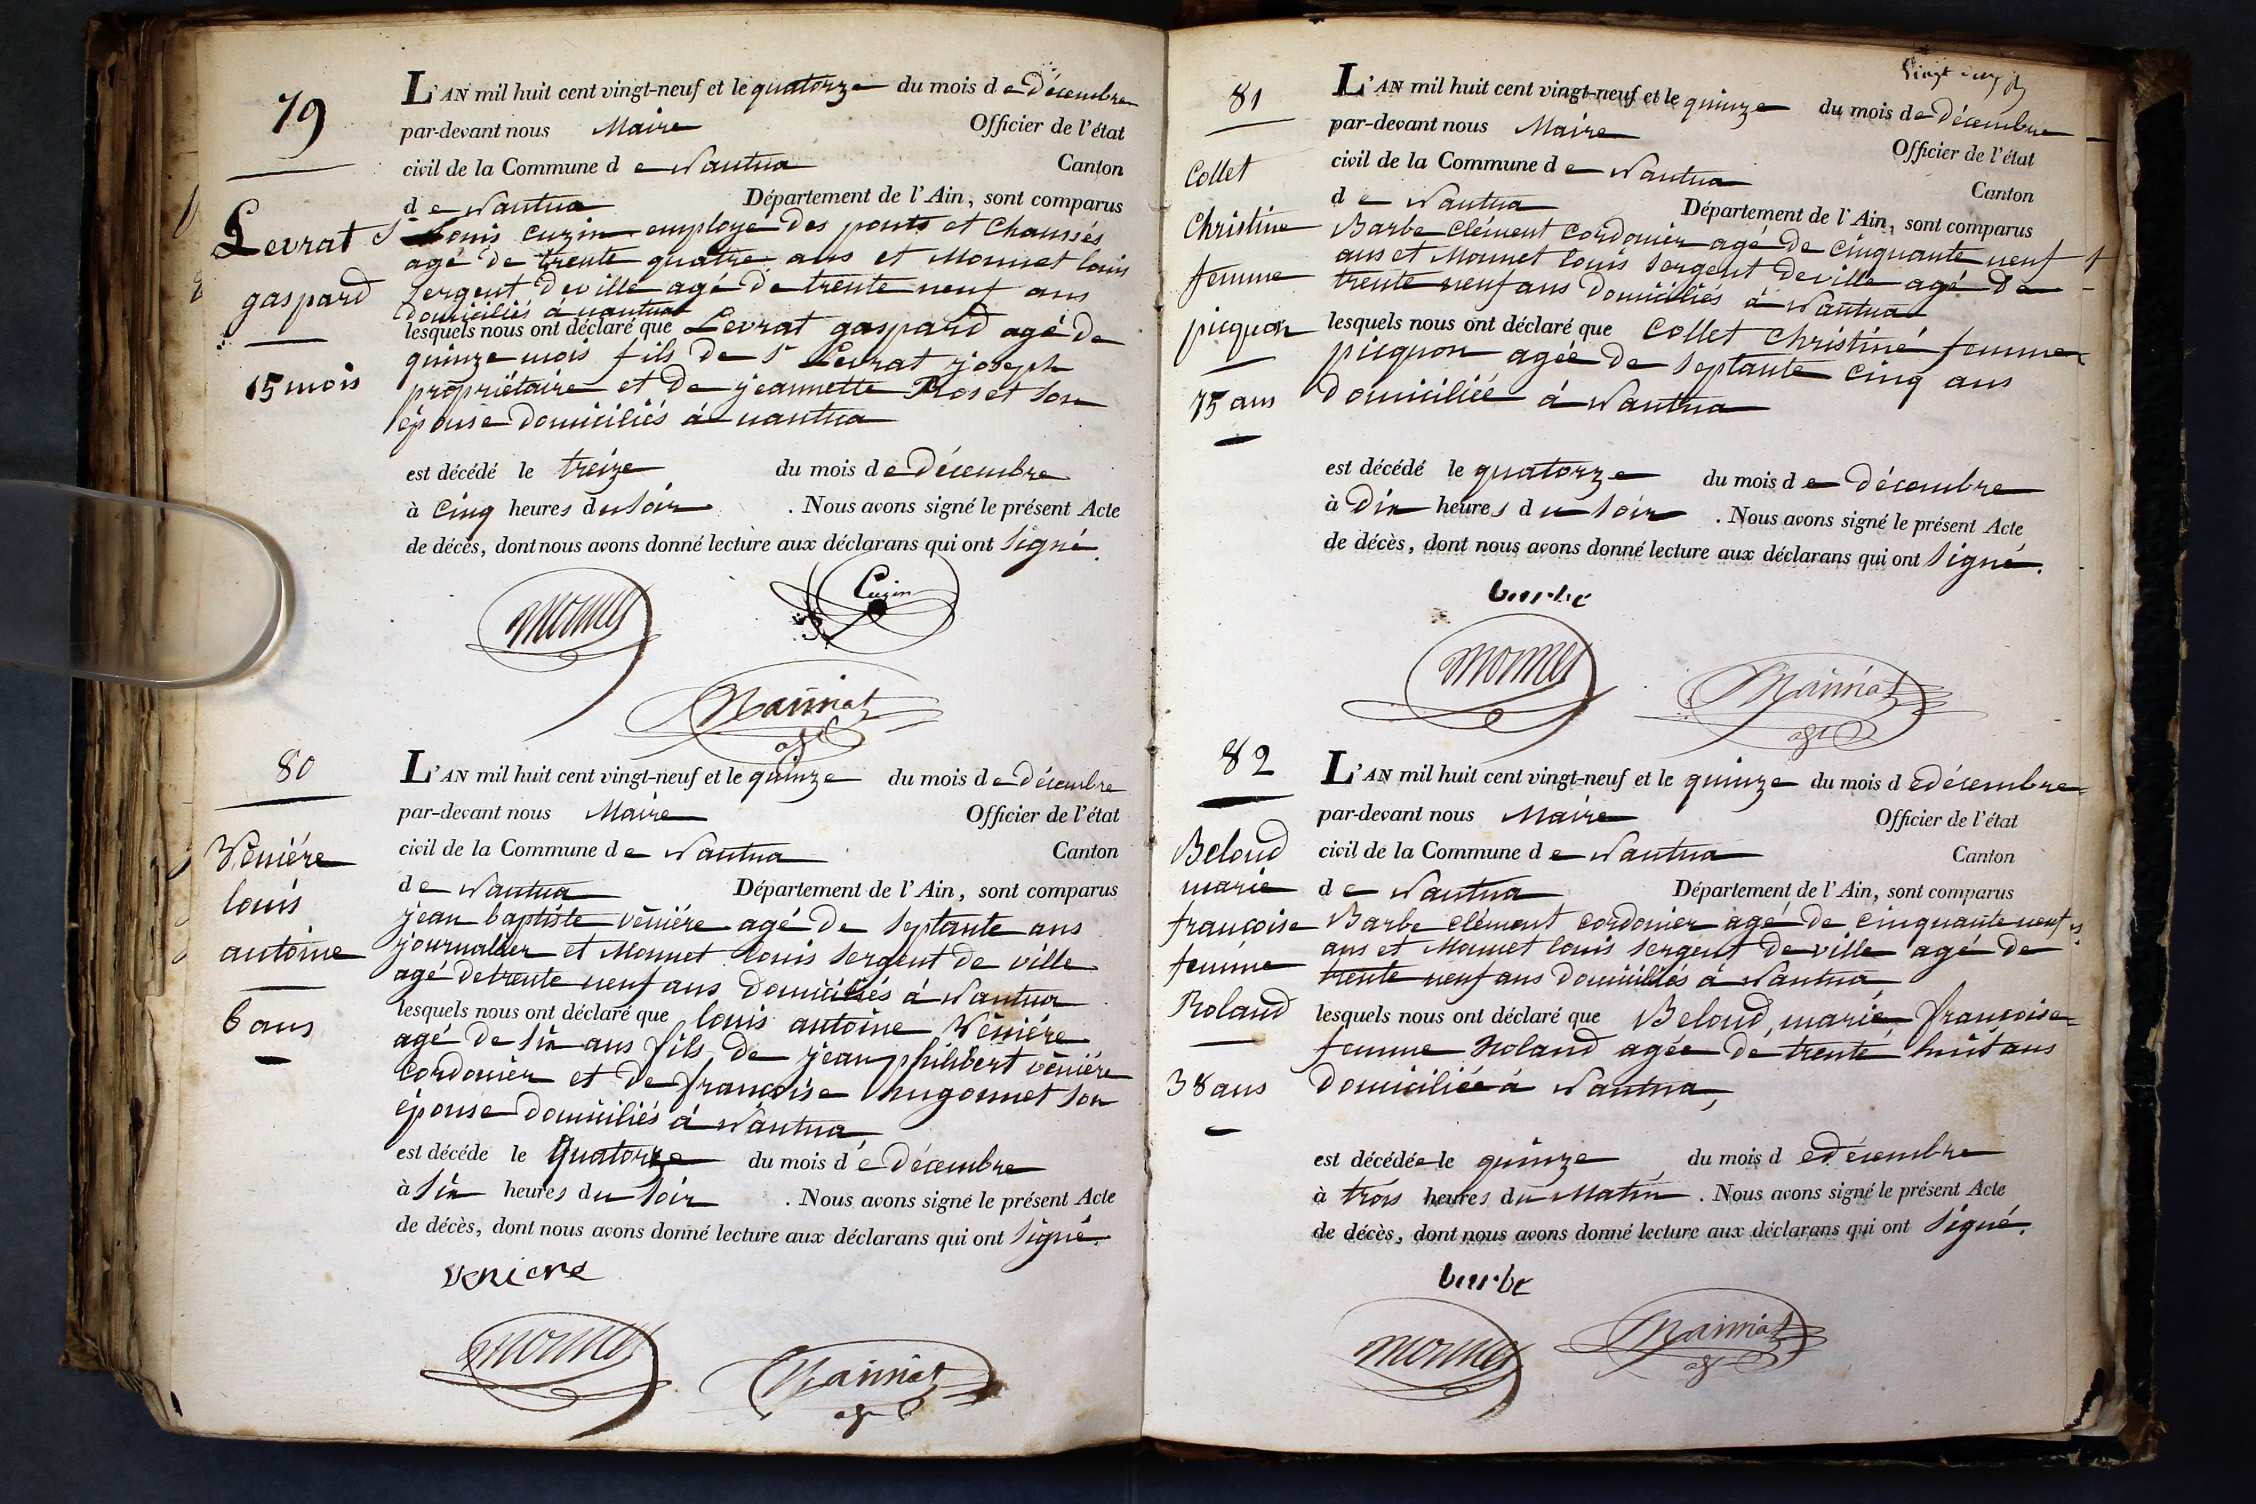 79
Levrat
gaspard
15 mois
L'AN mil huit cent vingt-neuf et le quatorze du mois de Décembre
par-devant nous Maire Officier de l'état
civil de la Commune de Nantua Canton
de Nantua Département de l'Ain, sont comparus
Sr Louis Cuzin employé des ponts et Chaussés
agé de trente quatre ans et Monnet louis
Sergent deville agé de trente neuf ans
domiciliés à nantua
lesquels nous ont déclaré que Levrat gaspard agé de
quinze mois fils de Sr Levrat joseph
propriétaire et de jeannette Roset son
épouse domiciliés à nantua
est décédé le treize du mois de Décembre
à Cinq heures du soir . Nous avons signé le présent Acte
de décès, dont nous avons donné lecture aux déclarans qui ont signé.
Monnet
Cuzin
80
Vénière
louis
antoine
6 ans
L'AN mil huit cent vingt-neuf et le quinze du mois de Décembre
par-devant nous Maire Officier de l'état
civil de la Commune de Nantua Canton
de Nantua Département de l'Ain, sont comparus
jean baptiste vénière agé de septante ans
journalier et Monnet louis sergent de ville
agé de trente neuf ans domiciliés à Nantua
lesquels nous ont déclaré que louis antoine Vénière
agé de six ans fils de jean philibert vénière
Cordonier et de françoise hugonnet son
épouse domiciliés à Nantua
est décédé le Quatorze du mois de Décembre
à six heures du soir . Nous avons signé le présent Acte
de décès, dont nous avons donné lecture aux déclarans qui ont signé.
veniere
Monnet
81
Collet
Christine
femme
picquon
75 ans
L'AN mil huit cent vingt-neuf et le quinze du mois de Décembre
par-devant nous Maire Officier de l'état
civil de la Commune de Nantua Canton
de Nantua Département de l'Ain, sont comparus
Barbe Clément Cordonier agé de cinquante neuf
ans et Monnet louis sergent deville agé de
trente neuf ans domiciliés à Nantua
lesquels nous ont déclaré que Collet Christine femme
picquon agée de septante cinq ans
domiciliée à Nantua
est décédé le quatorze du mois de Décembre
à Dix heures du soir . Nous avons signé le présent Acte
de décès, dont nous avons donné lecture aux déclarans qui ont signé.
barbe
Monnet
82
Beloud
marie
françoise
femme
Roland
38 ans
L'AN mil huit cent vingt-neuf et le quinze du mois de décembre
par-devant nous Maire Officier de l'état
civil de la Commune de Nantua Canton
de Nantua Département de l'Ain, sont comparus
Barbe Clément Cordonier agé de cinquante neuf
ans et Monnet louis sergent de ville agé de
trente neuf ans domiciliés à Nantua
lesquels nous ont déclaré que Beloud, marie françoise
femme Roland agée de trente huit ans
domiciliée à Nantua,
est décédée le quinze du mois de décembre
à trois heures du Matin . Nous avons signé le présent Acte
de décès, dont nous avons donné lecture aux déclarans qui ont signé.
barbe
Monnet